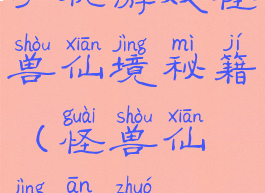 shòu xiān jìng mì jí
兽仙境秘籍
guài shòu xiān
(怪兽仙
jìng ān zhuó